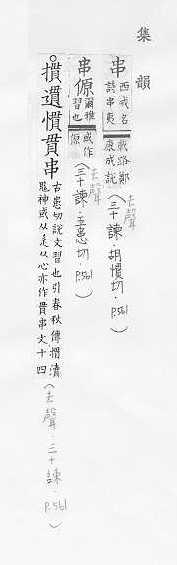 集韻
串 西戎名 詩串夷載路鄭康成説(去聲 三十諫.胡慣切.P.561)
串㥽 爾雅習也 或作㥽(去聲 三十諫.五患切.P.561)
○摜遺慣貫串 古患切説文習也引春秋傳摜瀆鬼神或从辵从心亦作貫串文十四(去聲.三十諫.P.561)